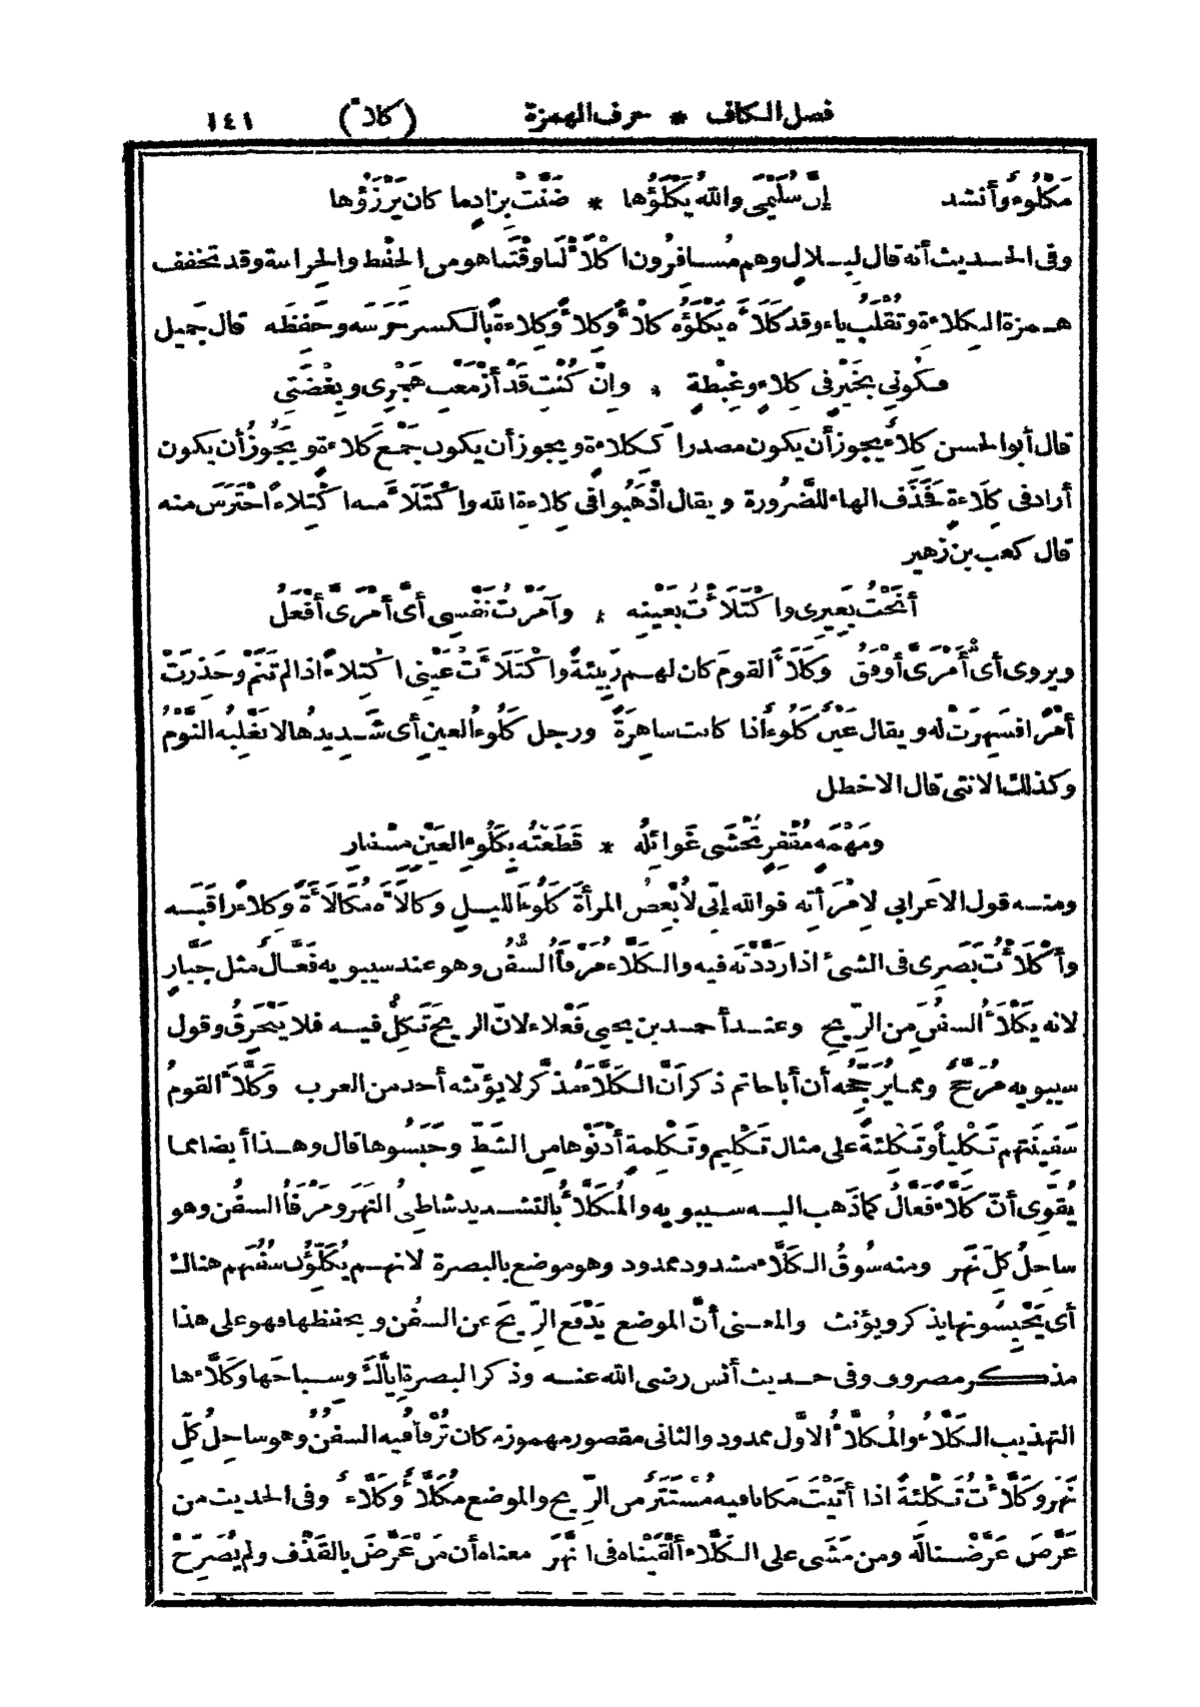 فصل الكاف * حرف الهمزة (كلأ) ١٤١
مَكْلُوءٌ وأنشد إنّ سُلَيْمَى واللهُ يَكْلَؤُها * ضَنَّتْ بِزادٍ ما كان يَرْزَؤُها
وفى الحديث أنه قال لِبلالٍ وهم مُسافِرُون اكْلَأْ لَنا وَقْتَنا هو من الحِفْظ والحِراسة وقد تخفف
همزة الكلاءة وتُقْلَبُ ياء وقد كَلَأَه يَكْلَؤُه كَلْأً وكِلاءً وكِلاءةً بالكسر حَرَسَه وحَفِظَه قال جَمِيل
فكُونِي بخَيْرٍ فى كِلاءٍ وغِبْطةٍ * وإنْ كُنْتِ قَدْ أَزْمَعْتِ هَجْرِى وبِغْضَتِى
قال أبو الحسن كِلاءٌ يجوز أن يكون مصدرا ككِلاءة ويجوز أن يكون جَمْعَ كِلاءةٍ ويَجُوزُ أن يكون
أراد فى كِلَاءةٍ فَحَذَف الهاء للضَّرُورة ويقال اذْهَبُوا فى كِلاءةِ الله واكْتَلَأَ منه اكْتِلاءً احْتَرَسَ منه
قال كعب بن زهير
أنَخْتُ بَعِيرِى واكْتَلَأْتُ بعَيْنِه * وآمَرْتُ نَفْسِى أىَّ أمْرَىَّ أفْعَلُ
ويروى أىُّ أمْرَىَّ أوْفَقُ وكَلَأَ القومَ كان لهم رَبِيئةً واكْتَلَأَتْ عَيْنِى اكْتِلاءً اذا لم تَنَمْ وحَذِرَتْ
أمْرًا فسَهِرَتْ له ويقال عَيْنٌ كَلُوءٌ اذا كانت ساهِرَةً ورجل كَلُوءُ العينِ أى شَدِيدُها لا يَغْلِبُه النَّوْمُ
وكذلك الانثى قال الاخطل
ومَهْمَهٍ مُقْفِرٍ تُخْشَى غَوائِلُه * قَطَعْتُه بِكَلُوءِ العَيْنِ مِسْفارِ
ومنه قول الاعرابى لامْرَأَتِه فوالله إنِّى لَأُبْغِضُ المرأةَ كَلُوءَ الليلِ وكالَأَه مُكالَأَةً وكِلاءً راقَبَه
وأَكْلَأْتُ بَصَرِى فى الشئ اذا رَدَّدْتَه فيه والكَلَّاءُ مَرْفَأُ السُّفُن وهو عند سيبويه فَعَّالٌ مثل جَبَّارٍ
لانه يَكْلَأُ السفُنَ مِن الرِّيحِ وعند أحمد بن يحيى فَعْلاء لانّ الريحَ تَكِلُّ فيه فلا يَنْخَرِقُ وقول
سيبويه مُرَجَّحٌ ومما يُرَجِّحُه أن أبا حاتم ذكر أنَّ الكَلَّاءَ مُذَكَّر لا يؤنّثه أحد من العرب وكَلَّأَ القومُ
سَفِينَتَهم تَكْلِيأً وتَكْلِئةً على مثال تَكْلِيم وتَكْلِمةٍ أدْنَوْها من الشَطّ وحَبَسُوها قال وهذا أيضا مما
يُقَوِّى أنّ كَلَّاءً فَعَّالٌ كما ذَهب اليه سيبويه والمُكَلَّأُ بالتشديد شاطِئُ النهَر ومَرْفَأُ السفُن وهو
ساحِلُ كلِّ نَهَر ومنه سُوقُ الكَلَّاء مشدود ممدود وهو موضع بالبصرة لانهم يُكَلِّؤُن سفُنَهم هناك
أى يَحْبِسُونها يذكر ويؤنث والمعنى أنّ الموضع يَدْفَع الرِّيحَ عن السفُن ويحفظها فهو على هذا
مذكر مصروف وفى حديث أنس رضى الله عنه وذكر البصرة ايَّاكَ وسِباخَها وكَلَّاءَها
التهذيب الكَلَّاءُ والمُكَلَّأُ الاوَّل ممدود والثانى مقصور مهموز مكان تُرْفَأُ فيه السفُنُ وهو ساحِلُ كلِّ
نَهَر وكَلَّأْتُ تَكْلِئةً اذا أتَيْتَ مَكانا فيه مُسْتَتَر من الرِّيح والموضع مُكَلَّأٌ وكَلَّاءٌ وفى الحديث من
عَرَّضَ عَرَّضْنا لَه ومن مَشَى على الكَلَّاء أَلْقَيْناه فى النَّهَر معناه أن مَنْ عَرَّضَ بالقَذْف ولم يُصَرِّحْ